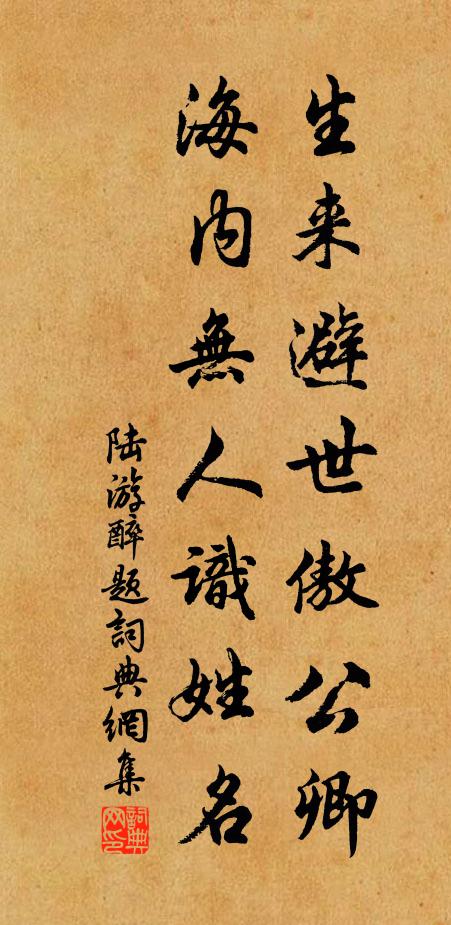 生来避世傲公卿
海内無人識姓名
陆游醉题詞典網集
詞典网印